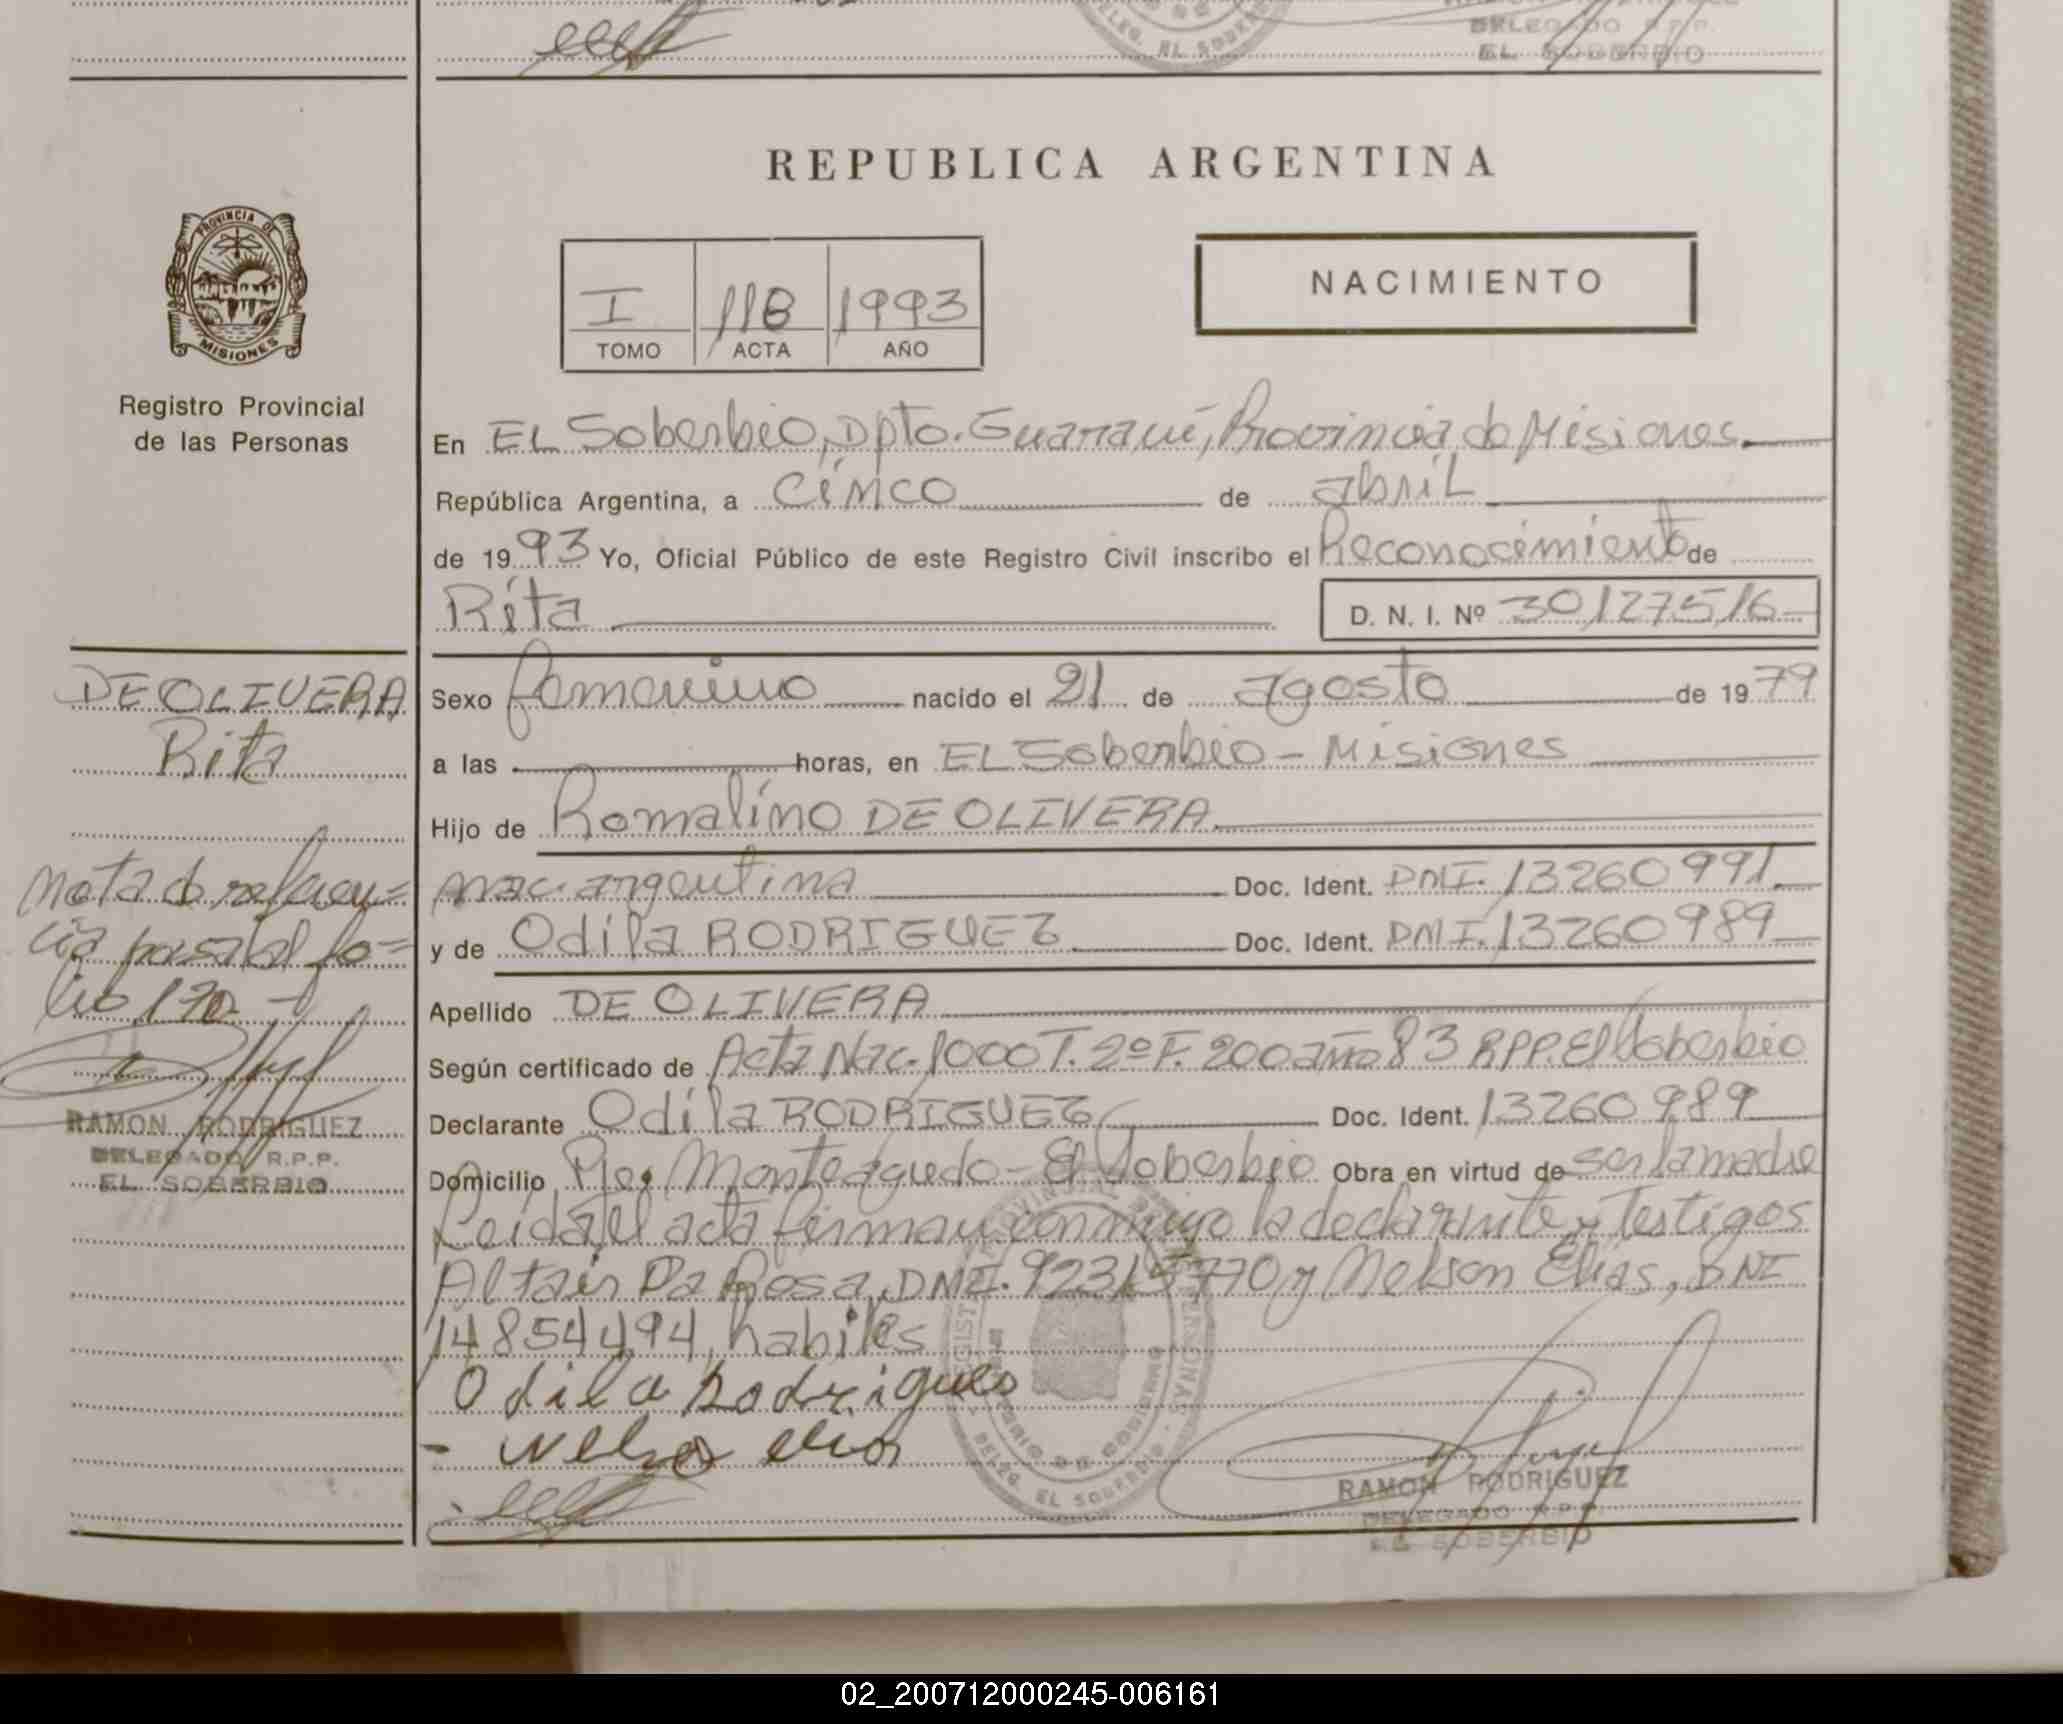 DELEG. EL SOBERBIO
DELEGADO R.P.P.
EL SOBERBIO
REPUBLICA ARGENTINA
PROVINCIA DE
MISIONES
Registro Provincial
de las Personas
I 118 1993
TOMO ACTA AÑO
NACIMIENTO
En EL Soberbio, Dpto. Guaraní, Provincia de Misiones.
República Argentina, a Cinco de abril
de 1993 Yo, Oficial Público de este Registro Civil inscribo el Reconocimiento de
Rita D. N. I. Nº 30127516
DE OLIVERA
Rita
Sexo femenino nacido el 21 de agosto de 1979
a las horas, en EL Soberbio - Misiones
Hijo de Romalino DE OLIVERA
nac. argentina Doc. Ident. DNI. 13260991
y de Odila RODRIGUEZ Doc. Ident. DNI. 13260989
Apellido DE OLIVERA
Según certificado de Acta Nac. 1000 T. 2º F. 200 año 83 RPP. El Soberbio
Declarante Odila RODRIGUEZ Doc. Ident. 13260989
Domicilio Pje. Monteagudo - El Soberbio Obra en virtud de ser la madre
Leída el acta firman conmigo la declarante y Testigos
Altair Da Rosa, DNI. 92315770 y Nelson Elias, DNI
14854494, habiles
Odila Rodrigues
- Nelso elias
nota de referen=
cia pasa al fo=
lio 170.
RAMON RODRIGUEZ
DELEGADO R.P.P.
EL SOBERBIO
REGISTRO PROVINCIAL DE LAS PERSONAS
MINISTERIO DE GOBIERNO
DELEG. EL SOBERBIO
RAMON RODRIGUEZ
DELEGADO R.P.P.
EL SOBERBIO
02_200712000245-006161